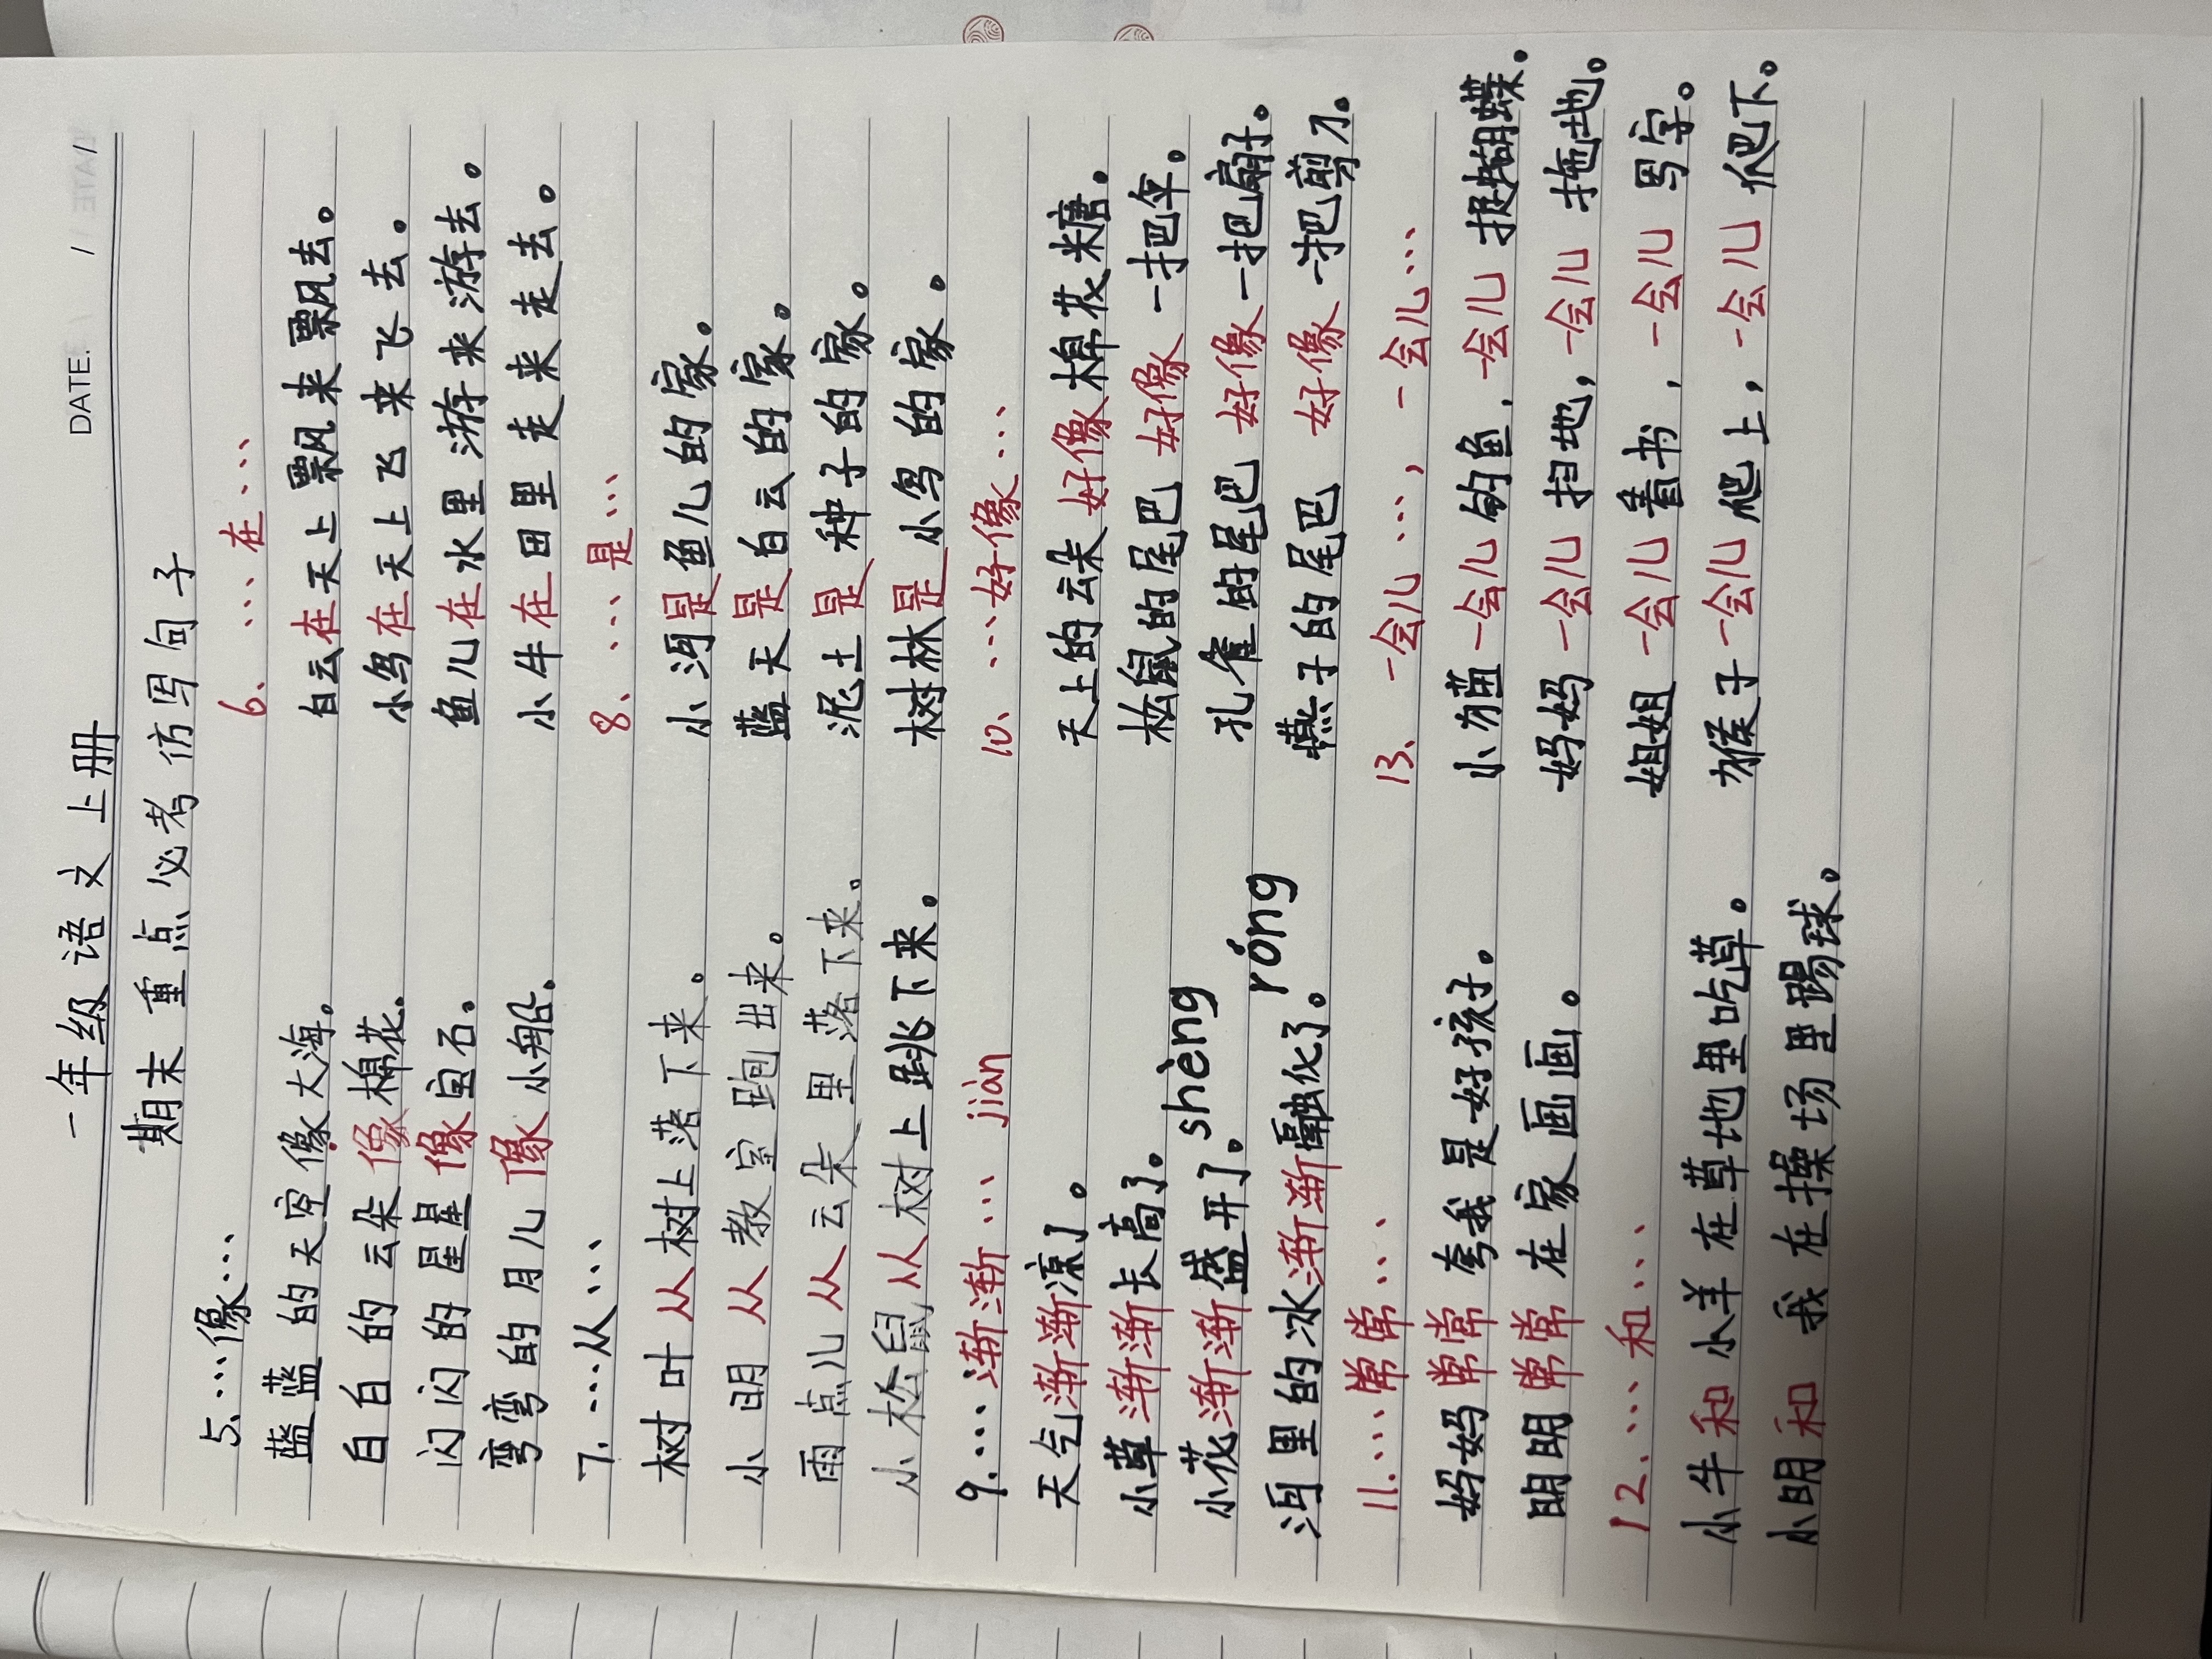 DATE. / /
一年级语文上册
期末重点必考仿写句子
5.…像…
蓝蓝的天空像大海。
白白的云朵像棉花.
闪闪的星星像宝石。
弯弯的月儿像小船.
6、…在…
白云在天上飘来飘去。
小鸟在天上飞来飞去。
鱼儿在水里游来游去。
小牛在田里走来走去。
7.…从…
树叶从树上落下来。
小明从教室跑出来。
雨点儿从云朵里落下来。
小松鼠从树上跳下来。
8、…是…
小河是鱼儿的家。
蓝天是白云的家。
泥土是种子的家。
树林是小鸟的家。
9.…渐渐… jiàn
天气渐渐凉了。
小草渐渐长高了。
小花渐渐盛开了。shèng
河里的冰渐渐融化了。róng
10、…好像…
天上的云朵好像棉花糖。
松鼠的尾巴好像一把伞。
孔雀的尾巴好像一把扇子。
燕子的尾巴好像一把剪刀。
11.…常常…
妈妈常常夸我是好孩子。
明明常常在家画画。
12.…和…
小牛和小羊在草地里吃草。
小明和我在操场里踢球。
13、一会儿…，一会儿…
小猫一会儿钓鱼，一会儿捉蝴蝶。
妈妈一会儿扫地，一会儿拖地。
姐姐一会儿看书，一会儿写字。
猴子一会儿爬上，一会儿爬下。